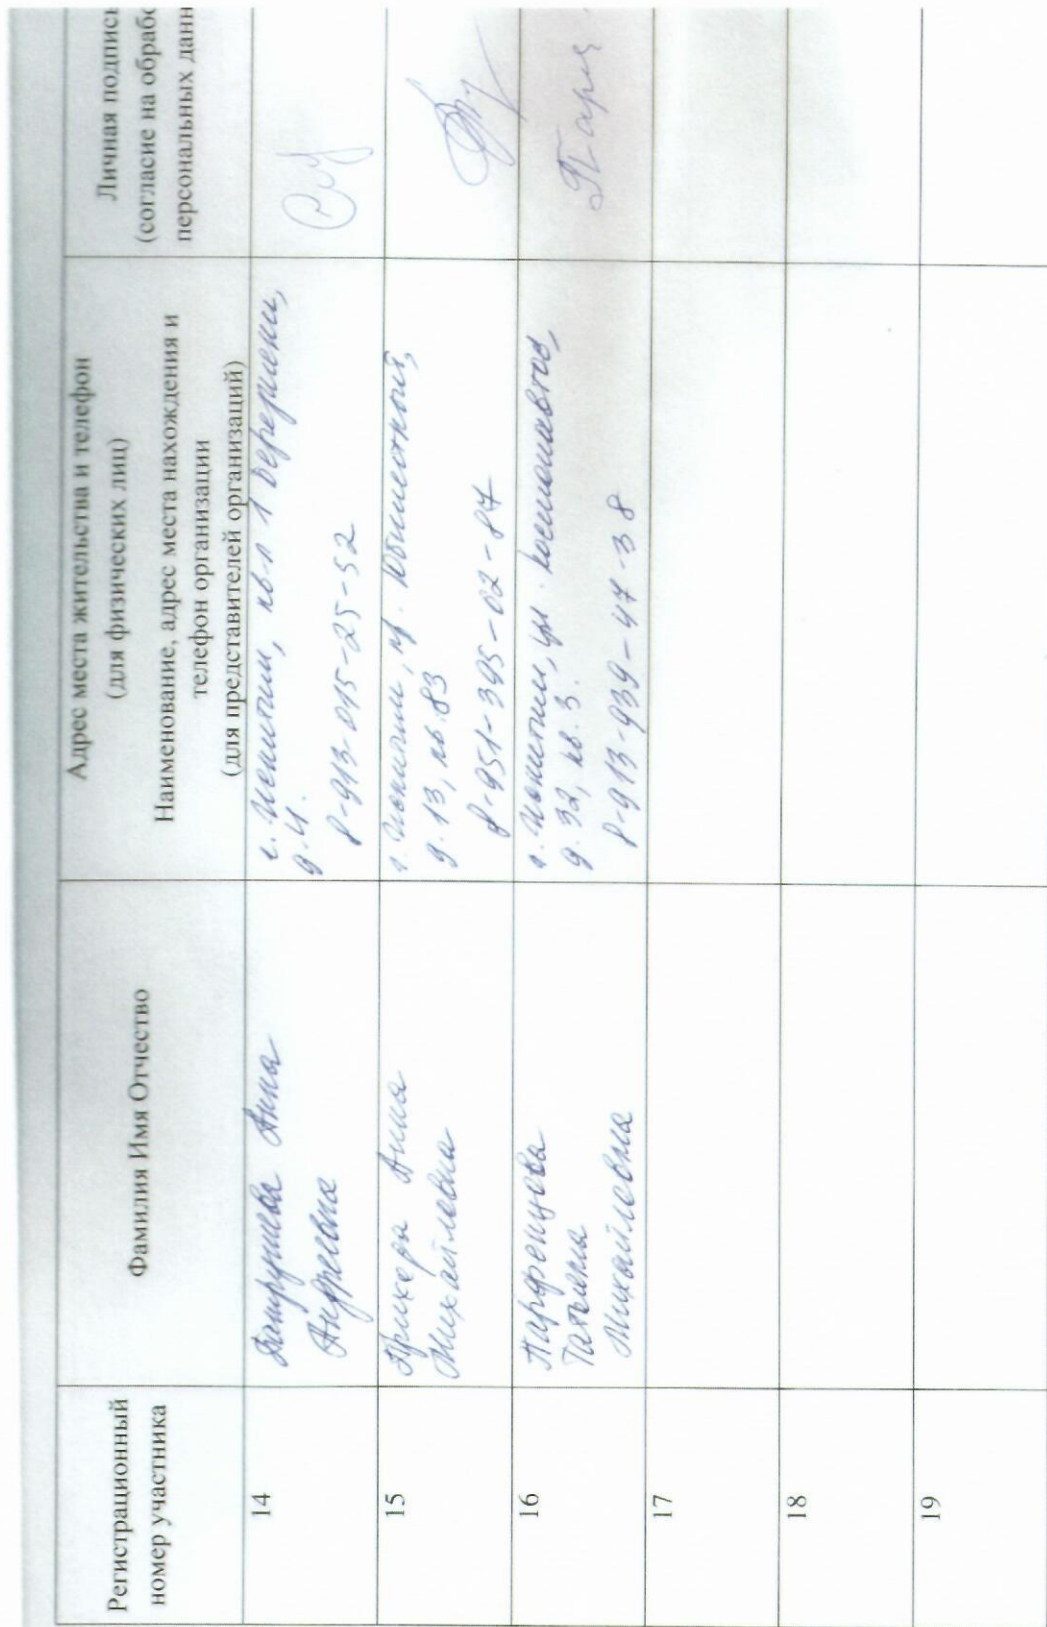 Регистрационный
номер участника
Фамилия Имя Отчество
Адрес места жительства и телефон
(для физических лиц)
Наименование, адрес места нахождения и
телефон организации
(для представителей организаций)
Личная подпис
(согласие на обрабо
персональных данн
14
Анна
Андреевна
г. Искитим, кв-л 1
8-913-015-25-52
15
Анна
Михайловна
г. Искитим, пр. Юбилейный,
д. 13, кв. 83
8-951-395-02-87
16
Парфенцева
Татьяна
Михайловна
г. Искитим, ул. Космонавтов,
д. 32, кв. 3.
8-913-939-47-38
17
18
19